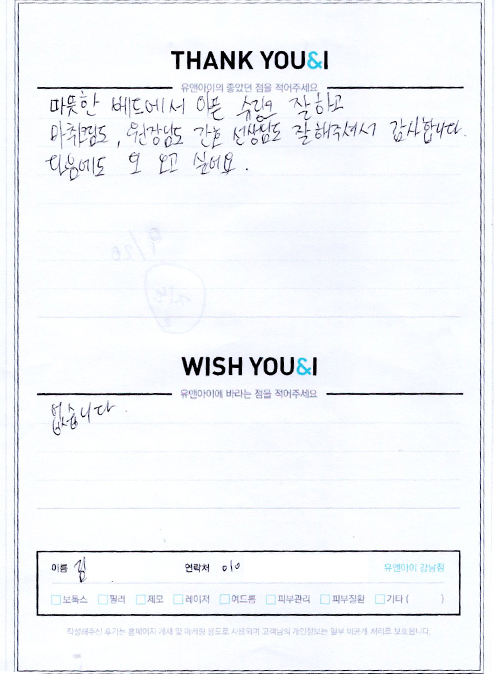 THANK YOU&I
유앤아이의 좋았던 점을 적어주세요
따뜻한 베드에서 아픈 수링도 잘하고
마취쌤도, 원장님도 간호 선생님도 잘해주셔서 감사합니다.
다음에도 또 오고 싶어요.
9/20
WISH YOU&I
유앤아이에 바라는 점을 적어주세요
없습니다.
이름 김 연락처 010 유앤아이 강남점
보톡스 필러 제모 레이저 여드름 피부관리 피부질환 기타 ( )
작성해주신 후기는 홈페이지 게재 및 마케팅 용도로 사용되며 고객님의 개인정보는 일부 비공개 처리로 보호됩니다.